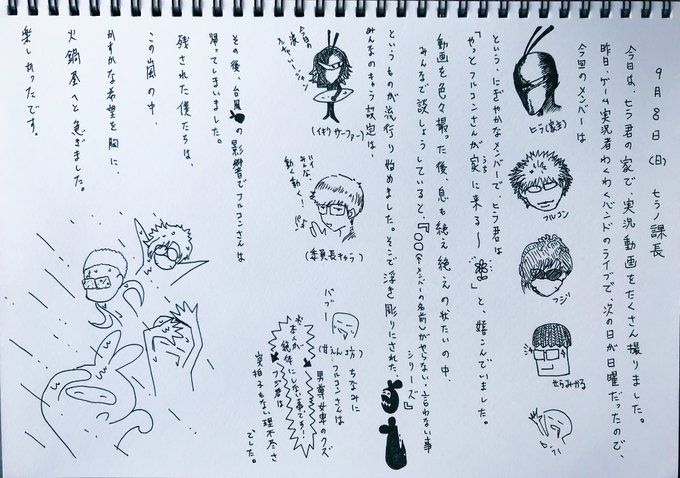 9月8日(日) セラノ課長
今日は、ヒラ君の家で、実況動画をたくさん撮りました。
昨日、ゲーム実況者わくわくバンドのライブで、次の日が日曜だったので、
今回のメンバーは
ヒラ(家主)
フルコン
フジ
せらみかる
という、にぎやかなメンバーで、ヒラ君は
「やっとフルコンさんが家に来る〜」と、嬉こんでいました。
うち
動画を色々撮った後、息も絶え絶えの状たいの中、
みんなで談しょうしていると、『〇〇(メンバーの名前)がやらない・言わない事
シリーズ』
というものが流行り始めました。そこで浮き彫りにされた、
みんなのキャラ設定は、
今日の波
(イキリサーファー)
みんな、
動く動く!
(委員長キャラ)
バブー
(甘えん坊)
ちなみに
フルコンさんは
男尊女卑のクズ
フジ君は
突拍子もない理不尽さ
でした。
※本人が
絶対にしない事です!
その後、台風の影響でフルコンさんは
帰ってしまいました。
残された僕たちは、
この嵐の中、
かすかな希望を胸に、
火鍋屋へと急ぎました。
楽しかったです。